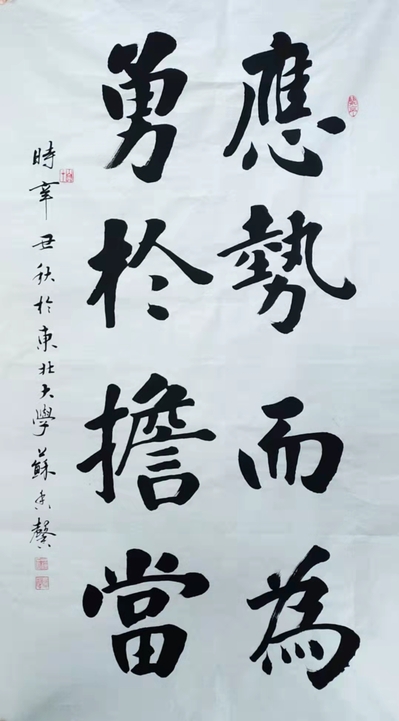 應勢而為
勇於擔當
時辛丑秋於東北大學蘇士馨